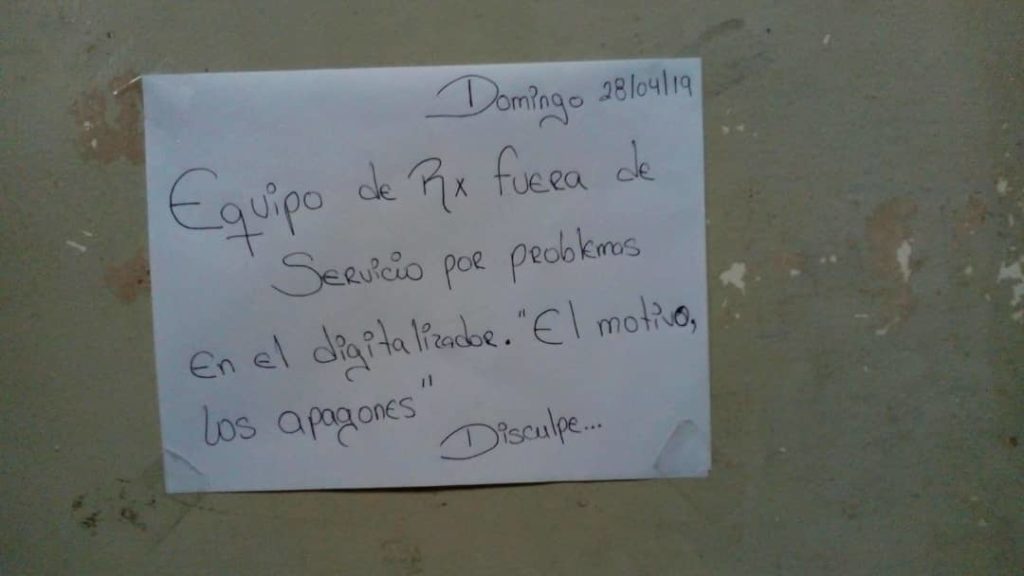 Domingo 28/04/19
Equipo de Rx fuera de
Servicio por problemas
en el digitalizador. "El motivo,
los apagones"
Disculpe...